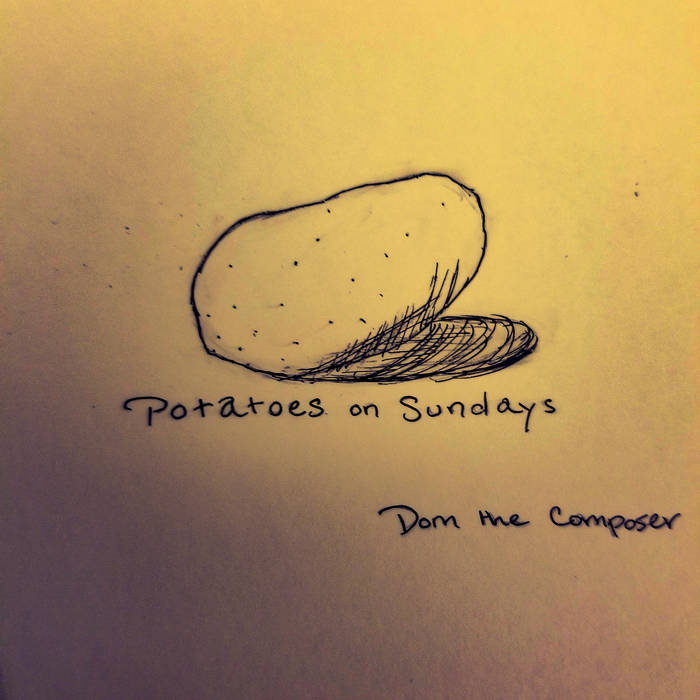 Potatoes on Sundays
Dom the Composer